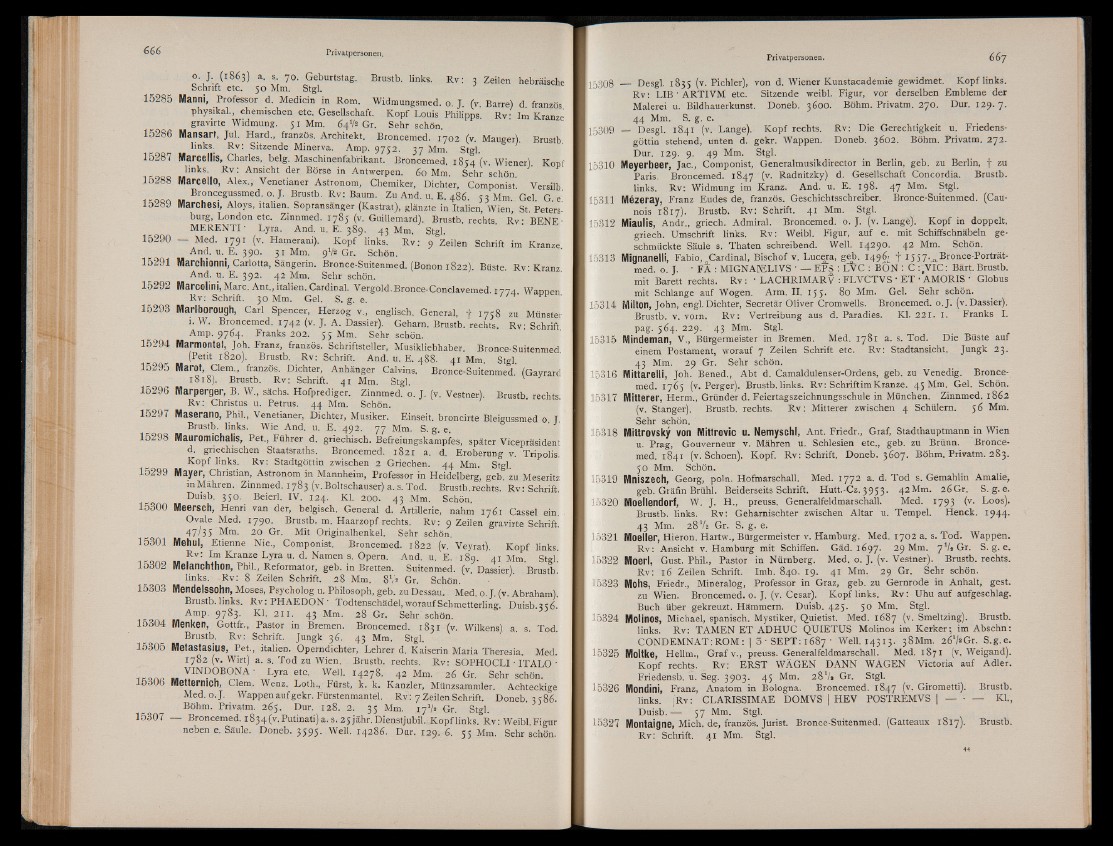 666 Privatpersonen.
o. J. (1863) a. s. 70. Geburtstag. Brustb. links. Rv: 3 Zeilen hebräische
Schrift etc. 50 Mm. Stgl.
15285 Manni, Professor d. Medicin in Rom. Widmungsmed. o. J. (v. Barre) d. französ.
physikal., chemischen etc. Gesellschaft. Kopf Louis Philipps. Rv: Im Kranze
gravirte Widmung. 51 Mm. 64½ Gr. Sehr schön.
15286 Mansart, Jul. Hard., französ. Architekt. Broncemed. 1702 (v. Mauger). Brustb.
links. Rv: Sitzende Minerva. Amp. 9752. 37 Mm. Stgl.
15287 Marcellis, Charles, belg. Maschinenfabrikant. Broncemed, 1854 (v. Wiener). Kopf
links. Rv: Ansicht der Börse in Antwerpen. 60 Mm. Sehr schön.
15288 Marcello, Alex., Venetianer Astronom, Chemiker, Dichter, Componist. Versilb.
Broncegussmed. o. J. Brustb. Rv: Baum. Zu And. u. E. 486. 53 Mm. Gel. G. e.
15289 Marchesi, Aloys, italien. Sopransänger (Kastrat), glänzte in Italien, Wien, St. Peters-
burg, London etc. Zinnmed. 1785 (v. Guillemard). Brustb. rechts. Rv: BENE ·
MERENTI · Lyra. And. u. E. 389. 43 Mm. Stgl.
15290 — Med. 1791 (v. Hamerani). Kopf links. Rv: 9 Zeilen Schrift im Kranze.
And. u. E. 390. 31 Mm. 9½ Gr. Schön.
15291 Marchionni, Carlotta, Sängerin. Bronce-Suitenmed. (Bonon 1822). Büste. Rv: Kranz.
And. u. E. 392. 42 Mm. Sehr schön.
15292 Marcelini, Marc. Ant., italien. Cardinal. Vergold. Bronce-Conclavemed. 1774. Wappen.
Rv: Schrift. 30 Mm. Gel. S. g. e.
15293 Marlborough, Carl Spencer, Herzog v., englisch. General, † 1758 zu Münster
i. W. Broncemed. 1742 (v. J. A. Dassier). Geharn. Brustb. rechts. Rv: Schrift.
Amp. 9764. Franks 202. 55 Mm. Sehr schön.
15294 Marmontel, Joh. Franz, französ. Schriftsteller, Musikliebhaber. Bronce-Suitenmed.
(Petit 1820). Brustb. Rv: Schrift. And. u. E. 488. 41 Mm. Stgl.
15295 Marot, Clem., französ. Dichter, Anhänger Calvins. Bronce-Suitenmed. (Gayrard
1818). Brustb. Rv: Schrift. 41 Mm. Stgl.
15296 Marperger, B. W., sächs. Hofprediger. Zinnmed. o. J. (v. Vestner). Brustb. rechts.
Rv: Christus u. Petrus. 44 Mm. Schön.
15297 Maserano, Phil., Venetianer, Dichter, Musiker. Einseit. broncirte Bleigussmed o. J.
Brustb. links. Wie And. u. E. 492. 77 Mm. S. g. e.
15298 Mauromichalis, Pet., Führer d. griechisch. Befreiungskampfes, später Vicepräsident
d. griechischen Staatsraths. Broncemed. 1821 a. d. Eroberung v. Tripolis.
Kopf links. Rv: Stadtgöttin zwischen 2 Griechen. 44 Mm. Stgl.
15299 Mayer, Christian, Astronom in Mannheim, Professor in Heidelberg, geb. zu Meseritz
in Mähren. Zinnmed. 1783 (v. Boltschauser) a. s. Tod. Brustb. rechts. Rv: Schrift.
Duisb. 350. Beierl. IV. 124. Kl. 200. 43 Mm. Schön.
15300 Meersch, Henri van der, belgisch. General d. Artillerie, nahm 1761 Cassel ein.
Ovale Med. 1790. Brustb. m. Haarzopf rechts. Rv: 9 Zeilen gravirte Schrift.
47/35 Mm. 20 Gr. Mit Originalhenkel. Sehr schön.
15301 Mehul, Etienne Nic., Componist. Broncemed. 1822 (v. Veyrat). Kopf links.
Rv: Im Kranze Lyra u. d. Namen s. Opern. And. u. E. 189. 41 Mm. Stgl.
15302 Melanchthon, Phil., Reformator, geb. in Bretten. Suitenmed. (v. Dassier). Brustb.
links. Rv: 8 Zeilen Schrift. 28 Mm. 8½ Gr. Schön.
15303 Mendelssohn, Moses, Psycholog u. Philosoph, geb. zu Dessau. Med. o. J. (v. Abraham).
Brustb. links. Rv: PHAEDON · Todtenschädel, worauf Schmetterling. Duisb. 356.
Amp. 9783. Kl. 211. 43 Mm. 28 Gr. Sehr schön.
15304 Menken, Gottfr., Pastor in Bremen. Broncemed. 1831 (v. Wilkens) a. s. Tod.
Brustb. Rv: Schrift. Jungk 36. 43 Mm. Stgl.
15305 Metastasius, Pet., italien. Operndichter, Lehrer d. Kaiserin Maria Theresia. Med.
1782 (v. Wirt) a. s. Tod zu Wien. Brustb. rechts. Rv: SOPHOCLI · ITALO ·
VINDOBONA · Lyra etc. Well. 14278. 42 Mm. 26 Gr. Sehr schön.
15306 Metternich, Clem. Wenz. Loth., Fürst, k. k. Kanzler, Münzsammler. Achteckige
Med. o. J. Wappen auf gekr. Fürstenmantel. Rv: 7 Zeilen Schrift. Doneb. 3586.
Böhm. Privatm. 265. Dur. 128. 2. 35 Mm. 17½ Gr. Stgl.
15307 — Broncemed. 1834 (v. Putinati) a. s. 25 jähr. Dienstjubil. Kopf links. Rv: Weibl. Figur
neben e. Säule. Doneb. 3595. Well. 14286. Dur. 129. 6. 55 Mm. Sehr schön.
Privatpersonen. 667
15308 — Desgl. 1835 (v. Pichler), von d. Wiener Kunstacademie gewidmet. Kopf links.
Rv: LIB · ARTIVM etc. Sitzende weibl. Figur, vor derselben Embleme der
Malerei u. Bildhauerkunst. Doneb. 3600. Böhm. Privatm. 270. Dur. 129. 7.
44 Mm. S. g. e.
15309 — Desgl. 1841 (v. Lange). Kopf rechts. Rv: Die Gerechtigkeit u. Friedens-
göttin stehend, unten d. gekr. Wappen. Doneb. 3602. Böhm. Privatm. 272.
Dur. 129. 9. 49 Mm. Stgl.
15310 Meyerbeer, Jac., Componist, Generalmusikdirector in Berlin, geb. zu Berlin, † zu
Paris. Broncemed. 1847 (v. Radnitzky) d. Gesellschaft Concordia. Brustb.
links. Rv: Widmung im Kranz. And. u. E. 198. 47 Mm. Stgl.
15311 Mézeray, Franz Eudes de, französ. Geschichtsschreiber. Bronce-Suitenmed. (Cau-
nois 1817). Brustb. Rv: Schrift. 41 Mm. Stgl.
15312 Miaulis, Andr., griech. Admiral. Broncemed. o. J. (v. Lange). Kopf in doppelt.
griech. Umschrift links. Rv: Weibl. Figur, auf e. mit Schiffschnäbeln ge-
schmückte Säule s. Thaten schreibend. Well. 14290. 42 Mm. Schön.
15313 Mignanelli, Fabio, Cardinal, Bischof v. Lucera, geb. 1496, † 1557. Bronce-Porträt-
med. o. J. · FA : MIGNANELIVS · — EPS : LVC : BON : C : VIC : Bärt. Brustb.
mit Barett rechts. Rv: · LACHRIMARV : FLVCTVS · ET · AMORIS · Globus
mit Schlange auf Wogen. Arm. II. 155. 80 Mm. Gel. Sehr schön.
15314 Milton, John, engl. Dichter, Secretär Oliver Cromwells. Broncemed. o. J. (v. Dassier).
Brustb. v. vorn. Rv: Vertreibung aus d. Paradies. Kl. 221. 1. Franks I.
pag. 564. 229. 43 Mm. Stgl.
15315 Mindeman, V., Bürgermeister in Bremen. Med. 1781 a. s. Tod. Die Büste auf
einem Postament, worauf 7 Zeilen Schrift etc. Rv: Stadtansicht. Jungk 23.
43 Mm. 29 Gr. Sehr schön.
15316 Mittarelli, Joh. Bened., Abt d. Camaldulenser-Ordens, geb. zu Venedig. Bronce-
med. 1765 (v. Perger). Brustb. links. Rv: Schrift im Kranze. 45 Mm. Gel. Schön.
15317 Mitterer, Herm., Gründer d. Feiertagszeichnungsschule in München. Zinnmed. 1862
(v. Stanger). Brustb. rechts. Rv: Mitterer zwischen 4 Schülern. 56 Mm.
Sehr schön.
15318 Mittrovský von Mittrovic u. Nemyschl, Ant. Friedr., Graf, Stadthauptmann in Wien
u. Prag, Gouverneur v. Mähren u. Schlesien etc., geb. zu Brünn. Bronce-
med. 1841 (v. Schoen). Kopf. Rv: Schrift. Doneb. 3607. Böhm. Privatm. 283.
50 Mm. Schön.
15319 Mniszech, Georg, poln. Hofmarschall. Med. 1772 a. d. Tod s. Gemahlin Amalie,
geb. Gräfin Brühl. Beiderseits Schrift. Hutt.-Cz. 3953. 42 Mm. 26 Gr. S. g. e.
15320 Moellendorf, W. J. H., preuss. Generalfeldmarschall. Med. 1793 (v. Loos).
Brustb. links. Rv: Geharnischter zwischen Altar u. Tempel. Henck. 1944.
43 Mm. 28½ Gr. S. g. e.
15321 Moeller, Hieron. Hartw., Bürgermeister v. Hamburg. Med. 1702 a. s. Tod. Wappen.
Rv: Ansicht v. Hamburg mit Schiffen. Gäd. 1697. 29 Mm. 7½ Gr. S. g. e.
15322 Moerl, Gust. Phil., Pastor in Nürnberg. Med. o. J. (v. Vestner). Brustb. rechts.
Rv: 16 Zeilen Schrift. Imh. 840. 19. 41 Mm. 29 Gr. Sehr schön.
15323 Mohs, Friedr., Mineralog, Professor in Graz, geb. zu Gernrode in Anhalt, gest.
zu Wien. Broncemed. o. J. (v. Cesar). Kopf links. Rv: Uhu auf aufgeschlag.
Buch über gekreuzt. Hämmern. Duisb. 425. 50 Mm. Stgl.
15324 Molinos, Michael, spanisch. Mystiker, Quietist. Med. 1687 (v. Smeltzing). Brustb.
links. Rv: TAMEN ET ADHUC QUIETUS Molinos im Kerker; im Abschn:
CONDEMNAT: ROM: | 5 · SEPT: 1687 · Well. 14313. 38 Mm. 26½ Gr. S. g. e.
15325 Moltke, Hellm., Graf v., preuss. Generalfeldmarschall. Med. 1871 (v. Weigand).
Kopf rechts. Rv: ERST WÄGEN DANN WAGEN Victoria auf Adler.
Friedensb. u. Seg. 3903. 45 Mm. 28½ Gr. Stgl.
15326 Mondini, Franz, Anatom in Bologna. Broncemed. 1847 (v. Girometti). Brustb.
links. Rv: CLARISSIMAE DOMVS | HEV POSTREMVS | — · — Kl.,
Duisb. — 57 Mm. Stgl.
15327 Montaigne, Mich. de, französ. Jurist. Bronce-Suitenmed. (Gatteaux 1817). Brustb.
Rv: Schrift. 41 Mm. Stgl.
44